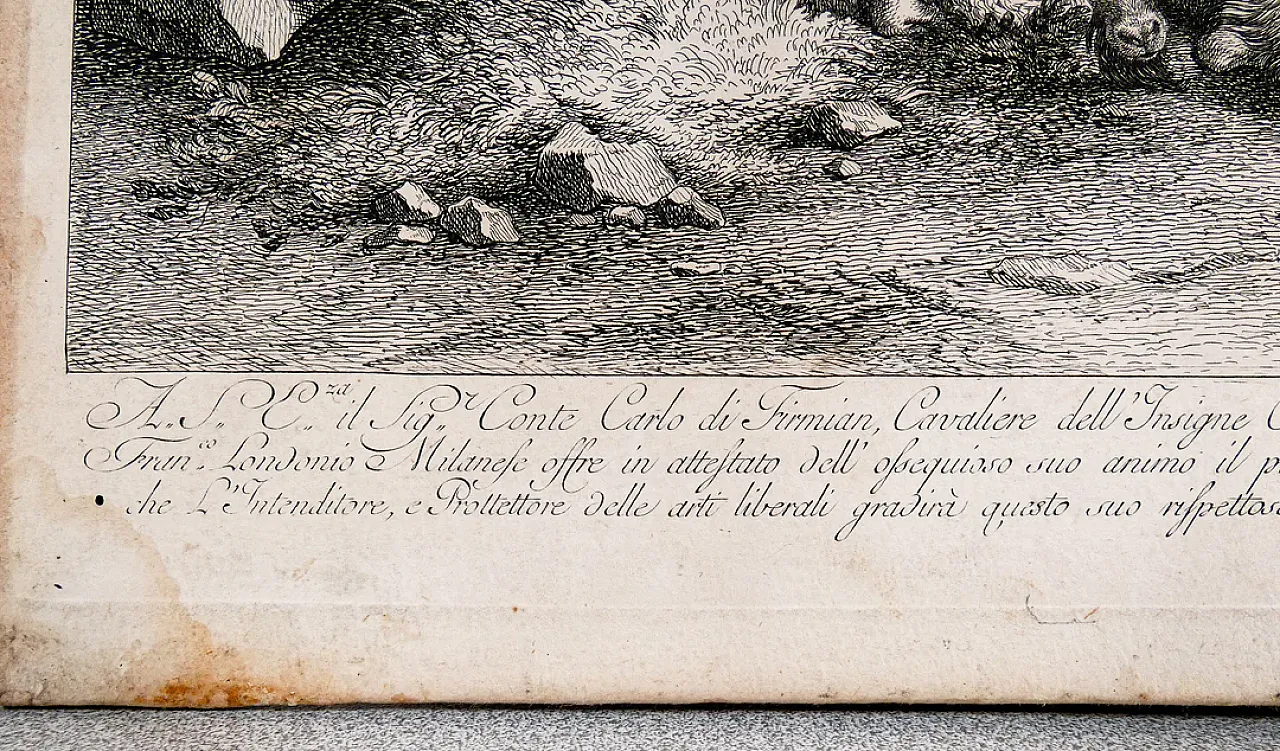 A. S. E.za il Sig.r Conte Carlo di Firmian, Cavaliere dell'Insigne
Fran.co Londonio Milanese offre in attestato dell' ossequioso suo animo il
che L'Intenditore, e Prottettore delle arti liberali gradirà questo suo rispettoso